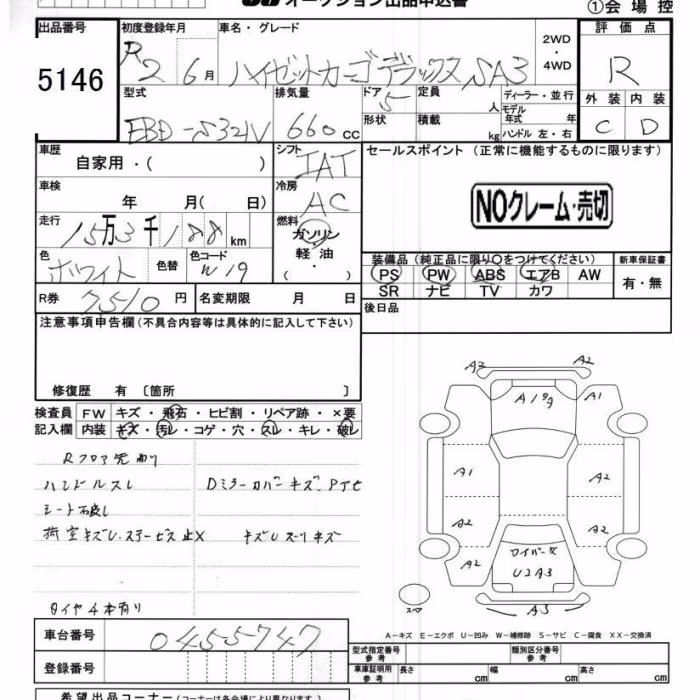 オークション出品申込書
①会場控
出品番号 初度登録年月 車名・グレード 2WD・4WD 評価点
5146 R2 6月 ハイゼットカーゴ デラックス SA3 R
型式 排気量 ドア 定員 人 ディーラー・並行 外装 内装
EBD-S321V 660cc 5 形状 積載 kg モデル年式 年 ハンドル 左・右 C D
車歴 自家用・( ) シフト IAT セールスポイント (正常に機能するものに限ります)
車検 年 月( 日) 冷房 AC NOクレーム・売切
走行 15万3千188km 燃料 ガソリン 軽油 ( ・ )
装備品 (純正品に限り○をつけてください) 新車保証書
色 ホワイト 色替 色コード W19 PS PW ABS エアB AW 有・無
SR ナビ TV カワ
R券 7510円 名変期限 月 日 後日品
注意事項申告欄 (不具合内容等は具体的に記入して下さい)
修復歴 有 〔箇所 〕
検査員 FW キズ・飛石・ヒビ割・リペア跡・×要
記入欄 内装 キズ・汚レ・コゲ・穴・スレ・キレ・破レ
Rフロア
ハンドルスレ Dミラーカバーキズ
シート
キズU
タイヤ4本有り
A2 A2
A1
A1 A1
A2 A2
A2
ワイパー
U2A3
スペア A3
A-キズ E-エクボ U-凹み W-補修跡 S-サビ C-腐食 XX-交換済
車台番号 0455747 型式指定番号 参考 類別区分番号 参考
登録番号 車庫証明用 参考 長さ cm 幅 cm 高さ cm
希望出品コーナー (コーナーは各会場により異なります。)